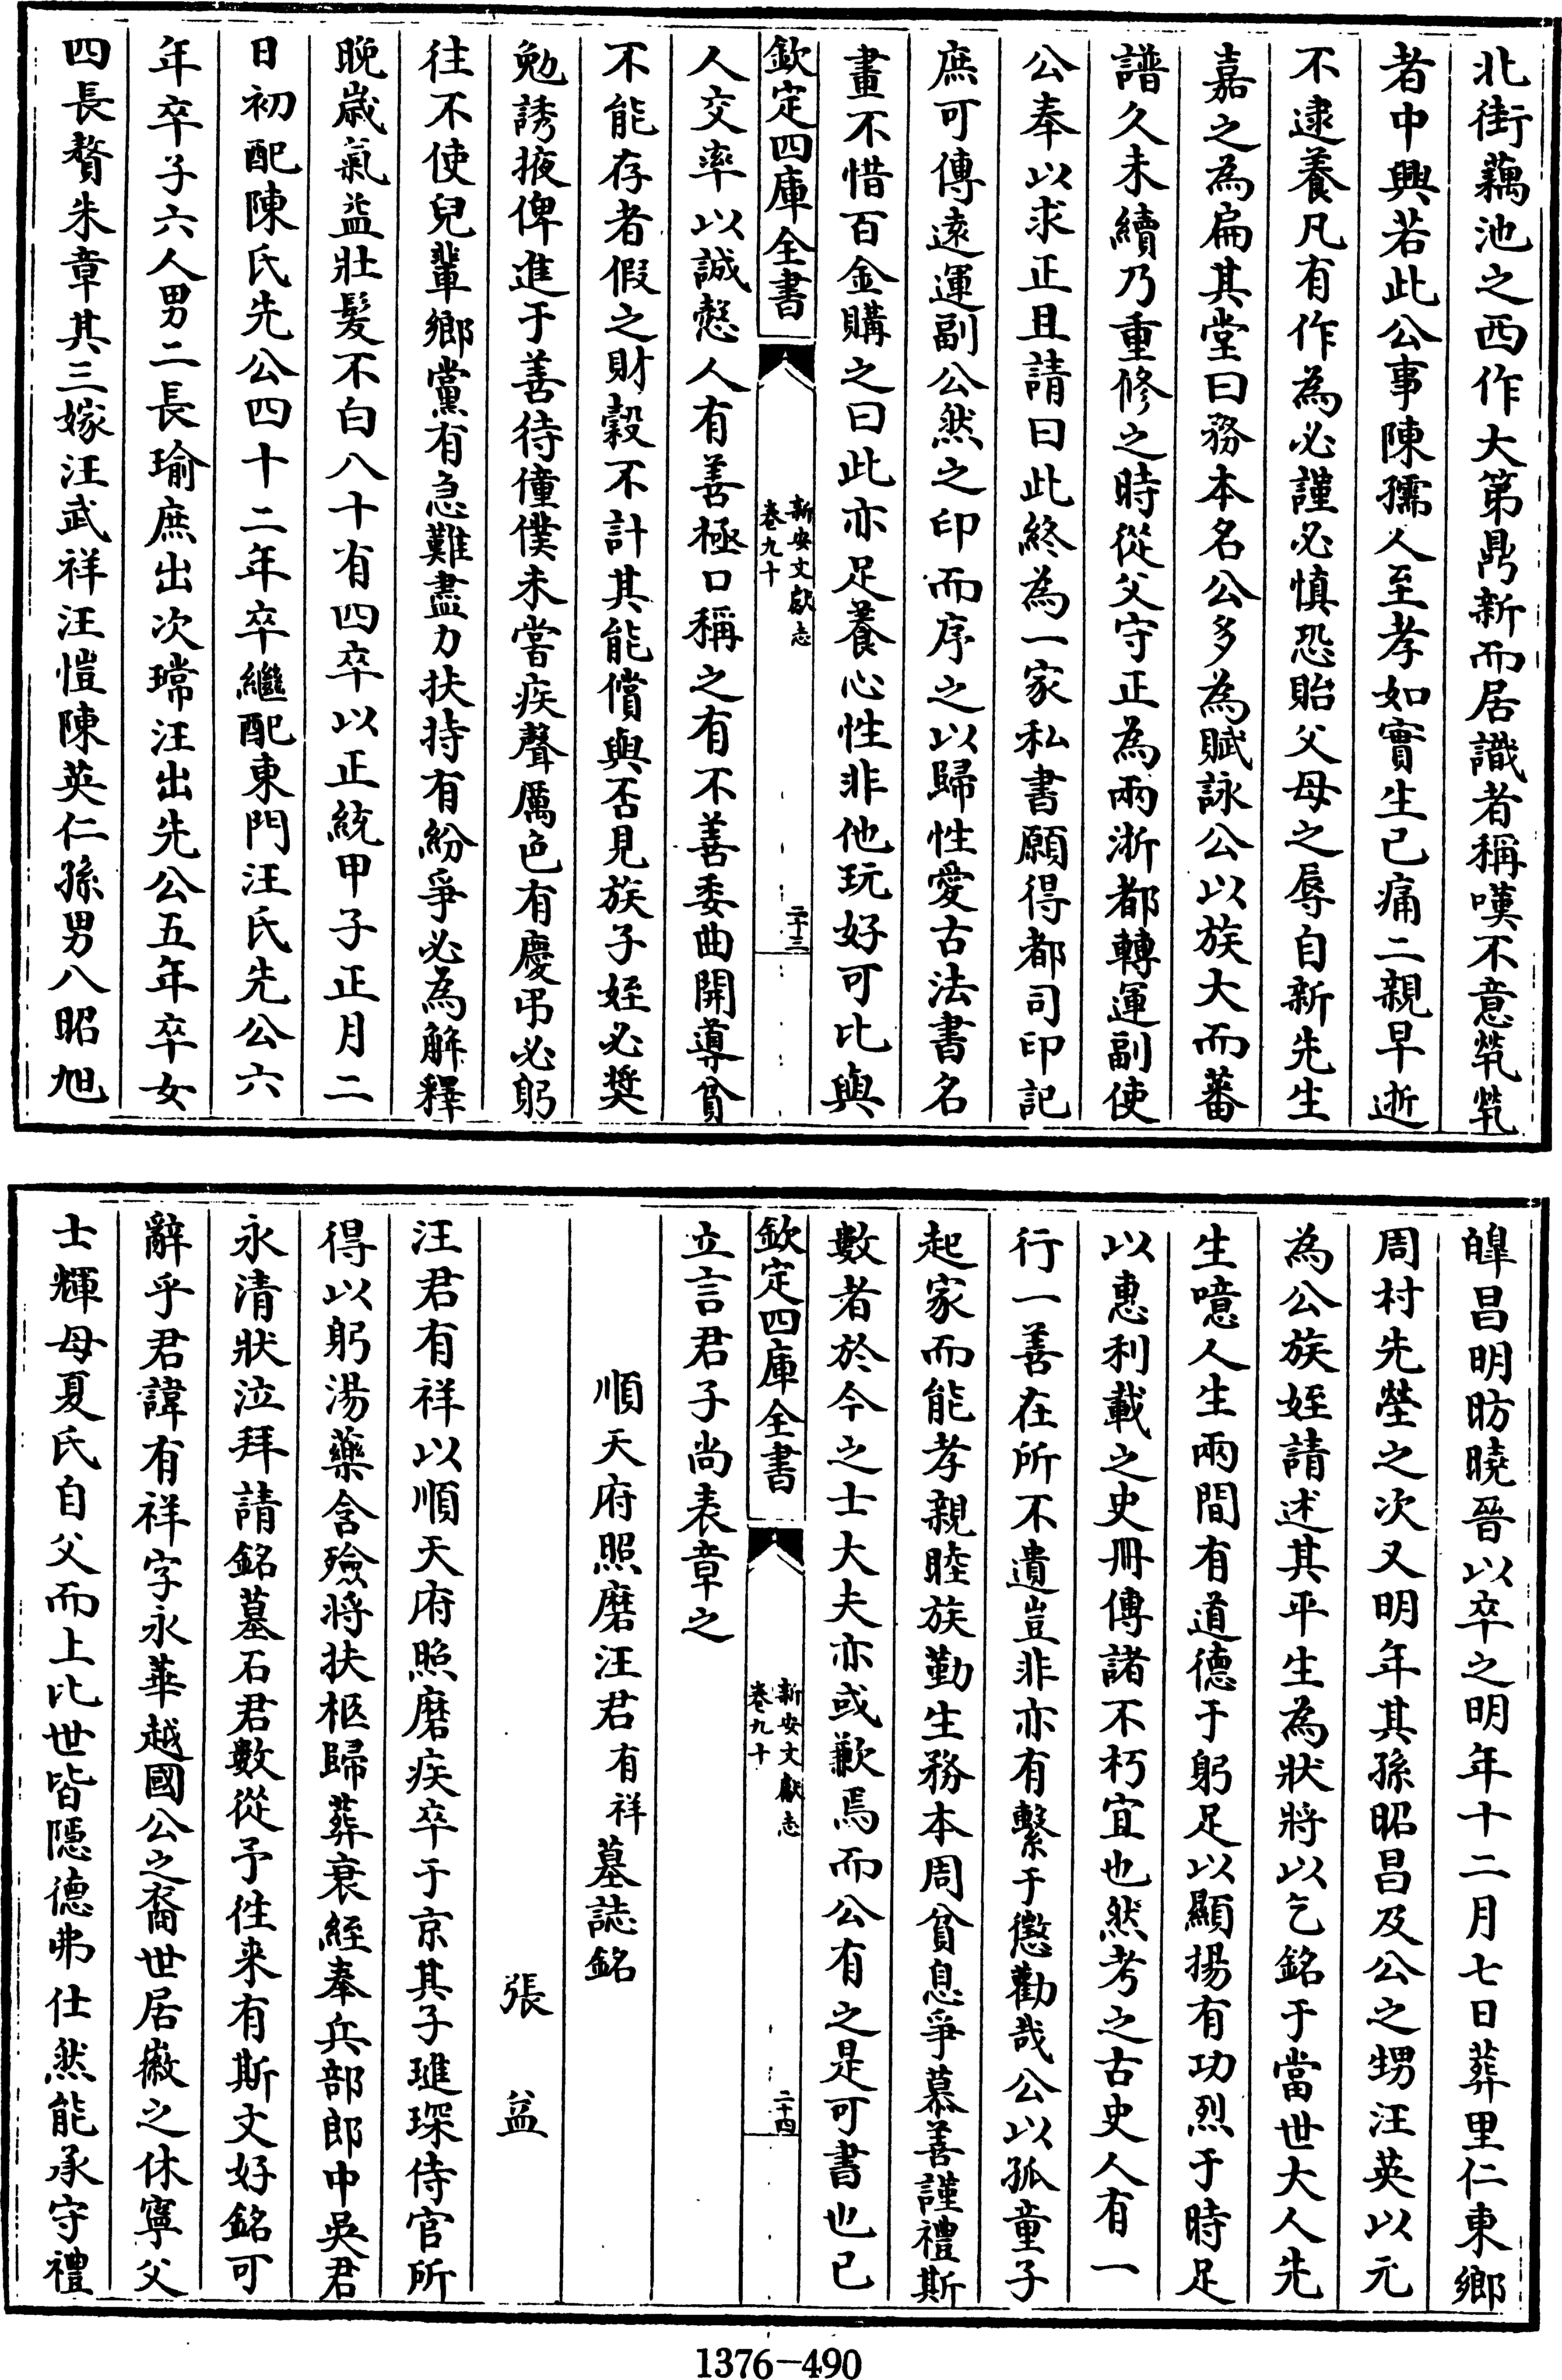 北街藕池之西作大第鼎新而居識者稱嘆不意煢煢
者中興若此公事陳孺人至孝如實生己痛二親早逝
不逮養凡有作為必謹必慎恐貽父母之辱自新先生
嘉之為扁其堂曰務本名公多為賦詠公以族大而蕃
譜久未續乃重修之時從父守正為兩浙都轉運副使
公奉以求正且請曰此終為一家私書願得都司印記
庶可傳遠運副公然之印而序之以歸性愛古法書名
畫不惜百金購之曰此亦足養心性非他玩好可比與
欽定四庫全書
新安文獻志
卷九十
二十三
人交率以誠慤人有善極口稱之有不善委曲開導貧
不能存者假之財穀不計其能償與否見族子姪必奬
勉誘掖俾進于善待僮僕未嘗疾聲厲色有慶弔必躬
往不使兒輩鄉黨有急難盡力扶持有紛爭必為解釋
晚歲氣益壯髮不白八十有四卒以正統甲子正月二
日初配陳氏先公四十二年卒繼配東門汪氏先公六
年卒子六人男二長瑜庶出次璫汪出先公五年卒女
四長贅朱章其三嫁汪武祥汪愷陳英仁孫男八昭旭
皥昌明昉曉晉以卒之明年十二月七日葬里仁東鄉
周村先塋之次又明年其孫昭昌及公之甥汪英以元
為公族姪請述其平生為狀將以乞銘于當世大人先
生噫人生兩間有道德于躬足以顯揚有功烈于時足
以惠利載之史冊傳諸不朽宜也然考之古史人有一
行一善在所不遺豈非亦有繫于懲勸哉公以孤童子
起家而能孝親睦族勤生務本周貧息爭慕善謹禮斯
數者於今之士大夫亦或歉焉而公有之是可書也已
欽定四庫全書
新安文獻志
卷九十
二十四
立言君子尚表章之
順天府照磨汪君有祥墓誌銘
張益
汪君有祥以順天府照磨疾卒于京其子璡琛侍官所
得以躬湯藥含殮將扶柩歸葬衰絰奉兵部郎中吳君
永清狀泣拜請銘墓石君數從予徃来有斯文好銘可
辭乎君諱有祥字永華越國公之裔世居徽之休寧父
士輝母夏氏自父而上比世皆隱德弗仕然能承守禮
1376-490